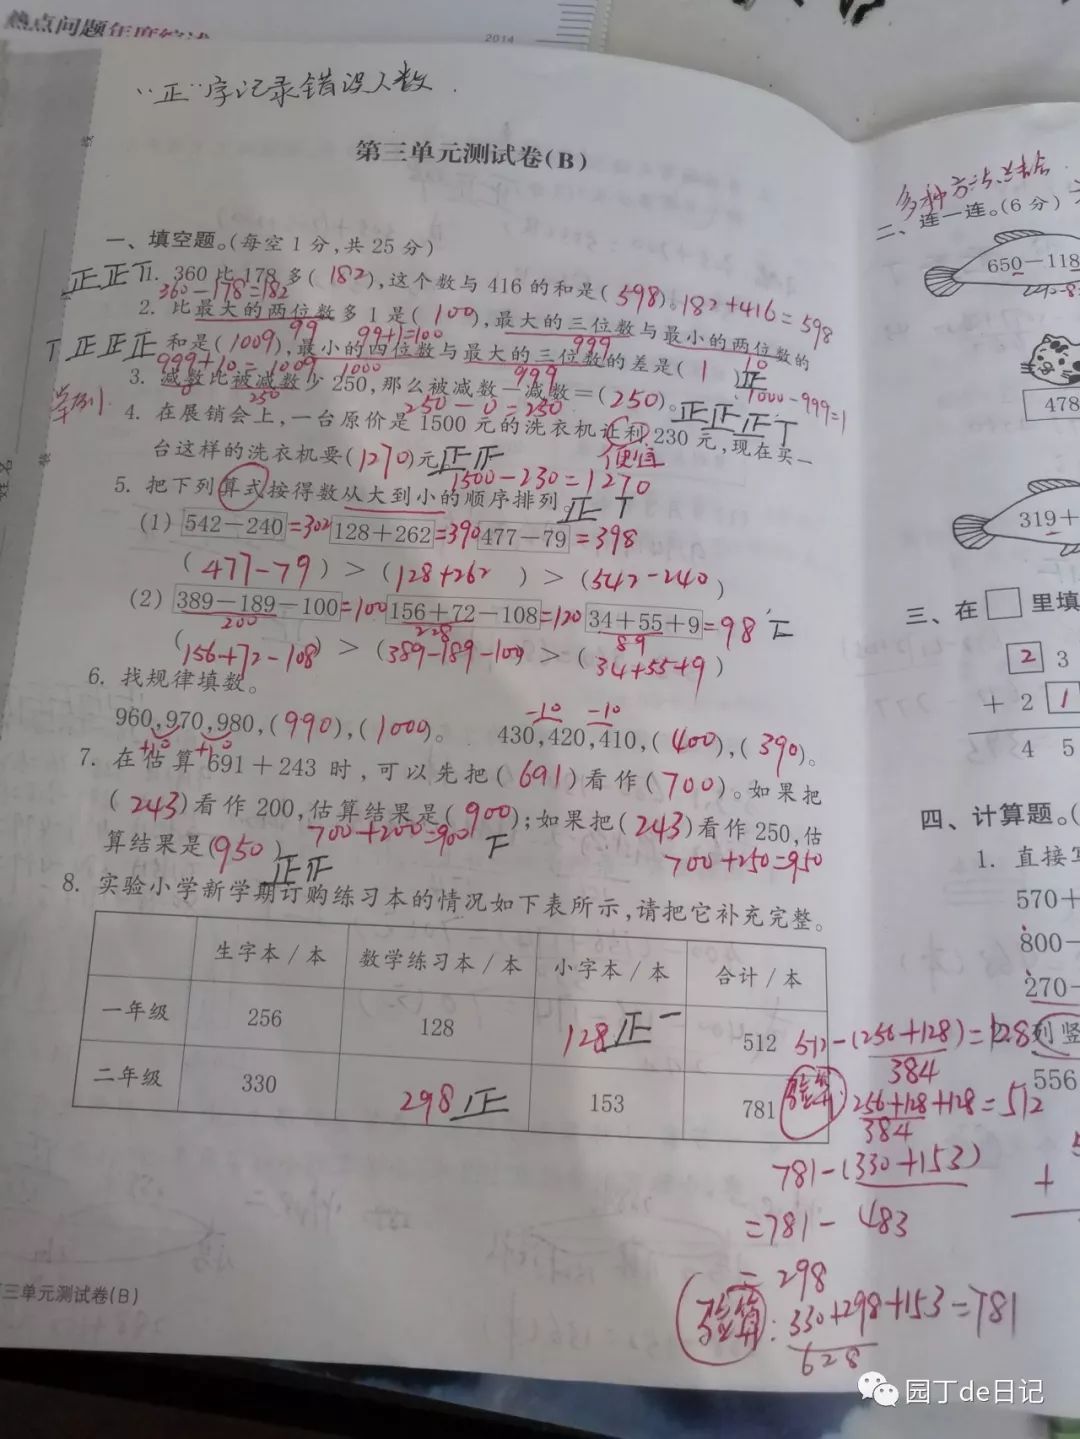 热点问题年度综述
2014
“正”字记录错误人数
第三单元测试卷(B)
一、填空题。(每空1分,共25分)
正正丅1. 360比178多(182),这个数与416的和是(598)。182+416=598
360-178=182
2. 比最大的两位数多1是(100),最大的三位数与最小的两位数的
99 99+1=100 999 10
正正正 和是(1009),最小的四位数与最大的三位数的差是(1)正
999+10=1009 1000 999 1000-999=1
举例 3. 减数比被减数少250,那么被减数-减数=(250)。正正正丅
0 250 250-0=250
4. 在展销会上,一台原价是1500元的洗衣机让利230元,现在买一
便宜
台这样的洗衣机要(1270)元正正
1500-230=1270
5. 把下列算式按得数从大到小的顺序排列。正丅
(1) 542-240=302 128+262=390 477-79=398
(477-79)>(128+262)>(542-240)
(2) 389-189-100=100 156+72-108=120 34+55+9=98
200 228 89
(156+72-108)>(389-189-100)>(34+55+9)
6. 找规律填数。
-10 -10
960,970,980,(990),(1000)。 430,420,410,(400),(390)。
+10 +10
7. 在估算691+243时,可以先把(691)看作(700)。如果把
(243)看作200,估算结果是(900);如果把(243)看作250,估
700+200=900
算结果是(950)
700+250=950
8. 实验小学新学期订购练习本的情况如下表所示,请把它补充完整。
生字本/本 数学练习本/本 小字本/本 合计/本
一年级 256 128 128正一 512
二年级 330 298正 153 781
512-(256+128)=128
384
验算:256+128+128=512
384
781-(330+153)
=781-483
=298
验算:330+298+153=781
628
三单元测试卷(B)
姓名
多种方法总结
二、连一连。(6分)
650-118
478
319+
三、在□里填
2 3
+ 2 1
4 5
四、计算题。(
1. 直接写
570+
800-
270-
列竖
556
+
园丁de日记